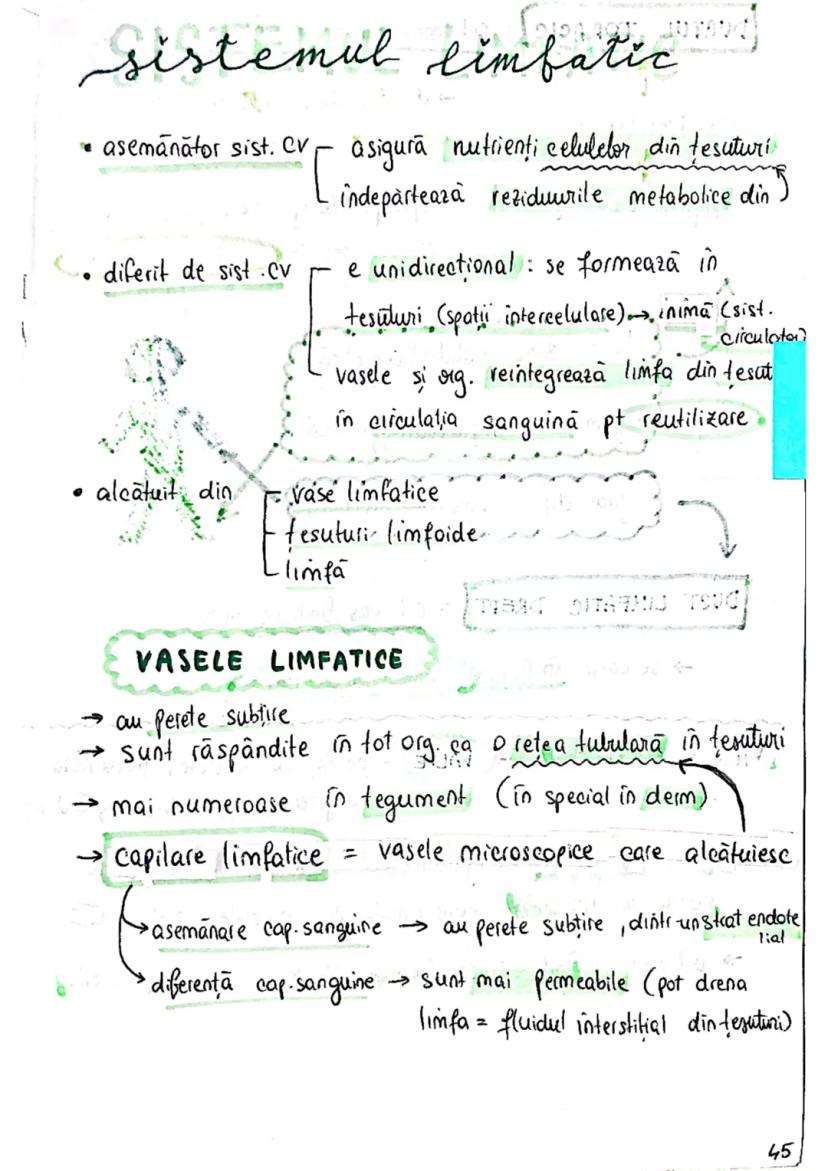 sistemul limfatic
• asemănător sist. CV
asigură nutrienți celulelor din țesuturi
îndepărtează reziduurile metabolice din
• diferit de sist. cv
e unidirecțional: se formează în
țesuturi (spații intercelulare) → inimă (sist.
circulator)
vasele și org. reintegrează limfa din țesut
în circulația sanguină pt reutilizare
• alcătuit din
vase limfatice
țesuturi limfoide
limfă
DUCT LIMFATIC DREPT
VASELE LIMFATICE
→ au perete subțire
→ sunt răspândite în tot org. ca o rețea tubulară în țesuturi
→ mai numeroase în tegument (în special în derm)
→ capilare limfatice = vasele microscopice care alcătuiesc
→ asemănare cap. sanguine → au perete subțire, dintr-un strat endote
lial
→ diferență cap. sanguine → sunt mai permeabile (pot drena
limfa = fluidul interstițial din țesuturi)
45